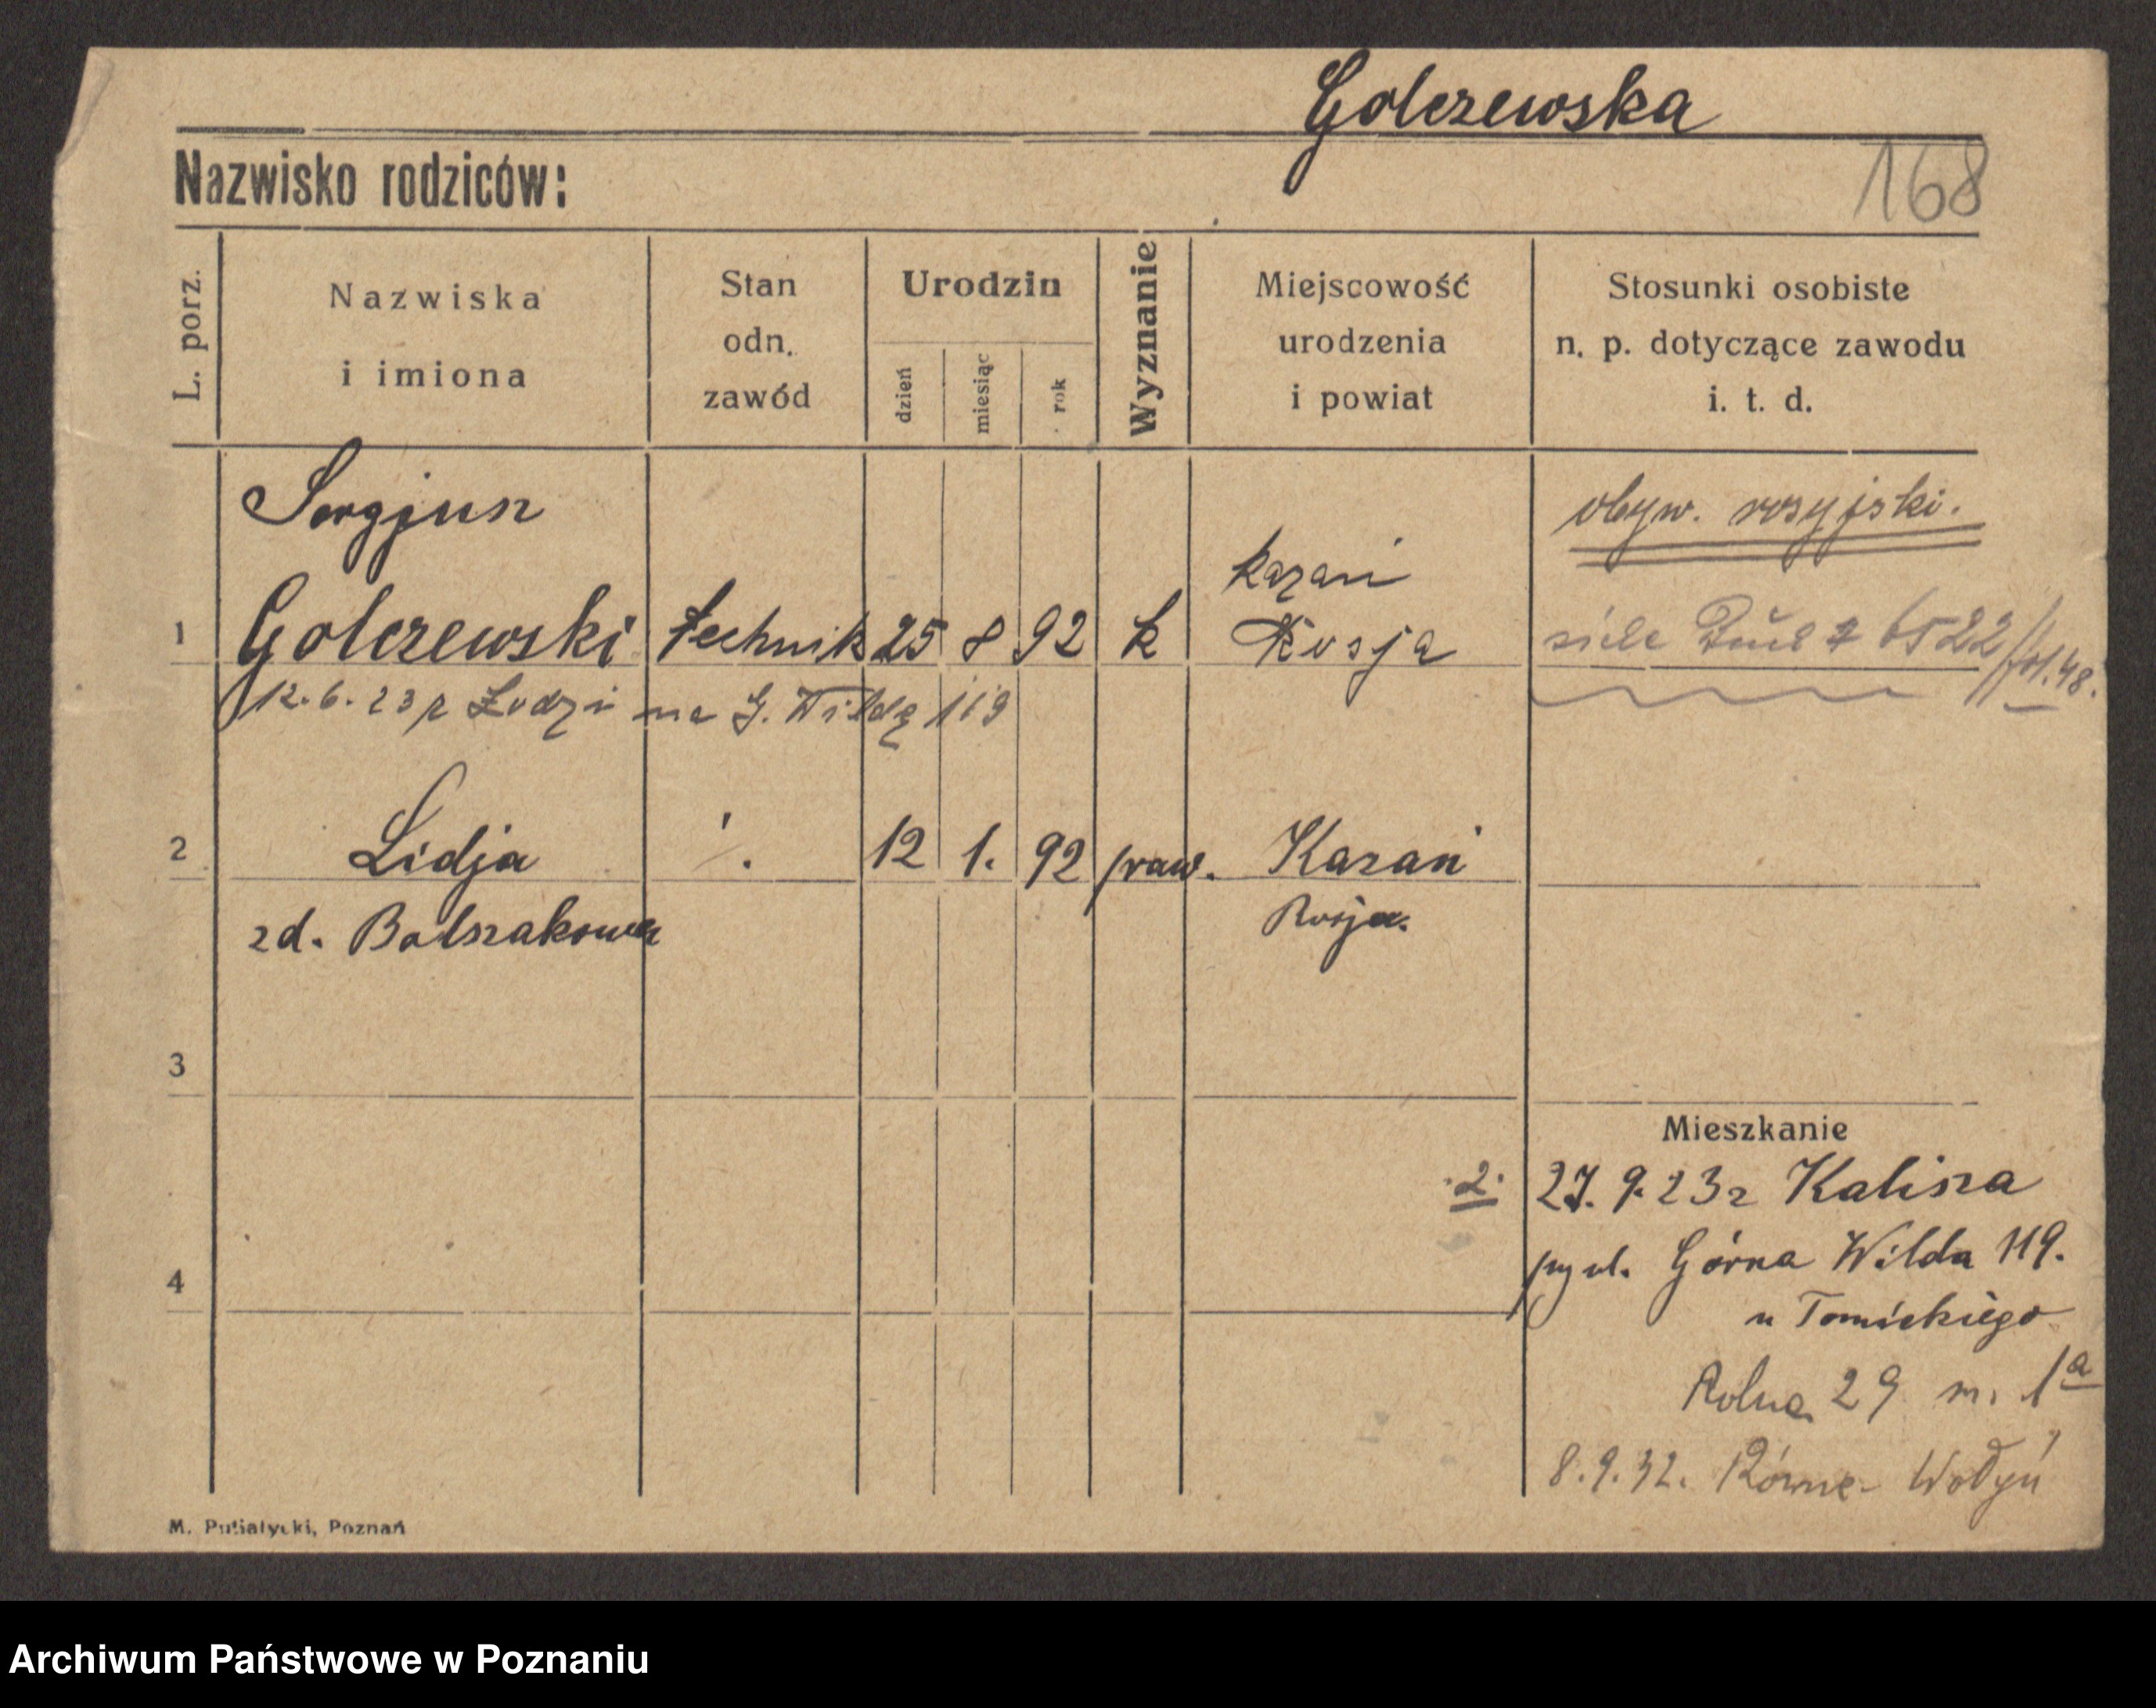 Golczewska
168
Nazwisko rodziców:
L. porz.
Nazwiska
i imiona
Stan
odn.
zawód
Urodzin
dzień
miesiąc
rok
Wyznanie
Miejscowość
urodzenia
i powiat
Stosunki osobiste
n. p. dotyczące zawodu
i. t. d.
Sergjusz
obyw. rosyjski.
Kazań
1 Golczewski technik 25 8 92 k Rosja
6522/fol. 48.
12.6.23 z Łodzi na G. Wildę 119
2 Lidja 12 1. 92 praw. Kazań
zd. Bolszakowa Rosja.
3
Mieszkanie
2. 27. 9. 23 z Kalisza
ul. Górna Wilda 119.
4
u Tomickiego
Rolna 29 m. 1a
8.9.32. Równe Wołyń
M. Putiatycki, Poznań
Archiwum Państwowe w Poznaniu